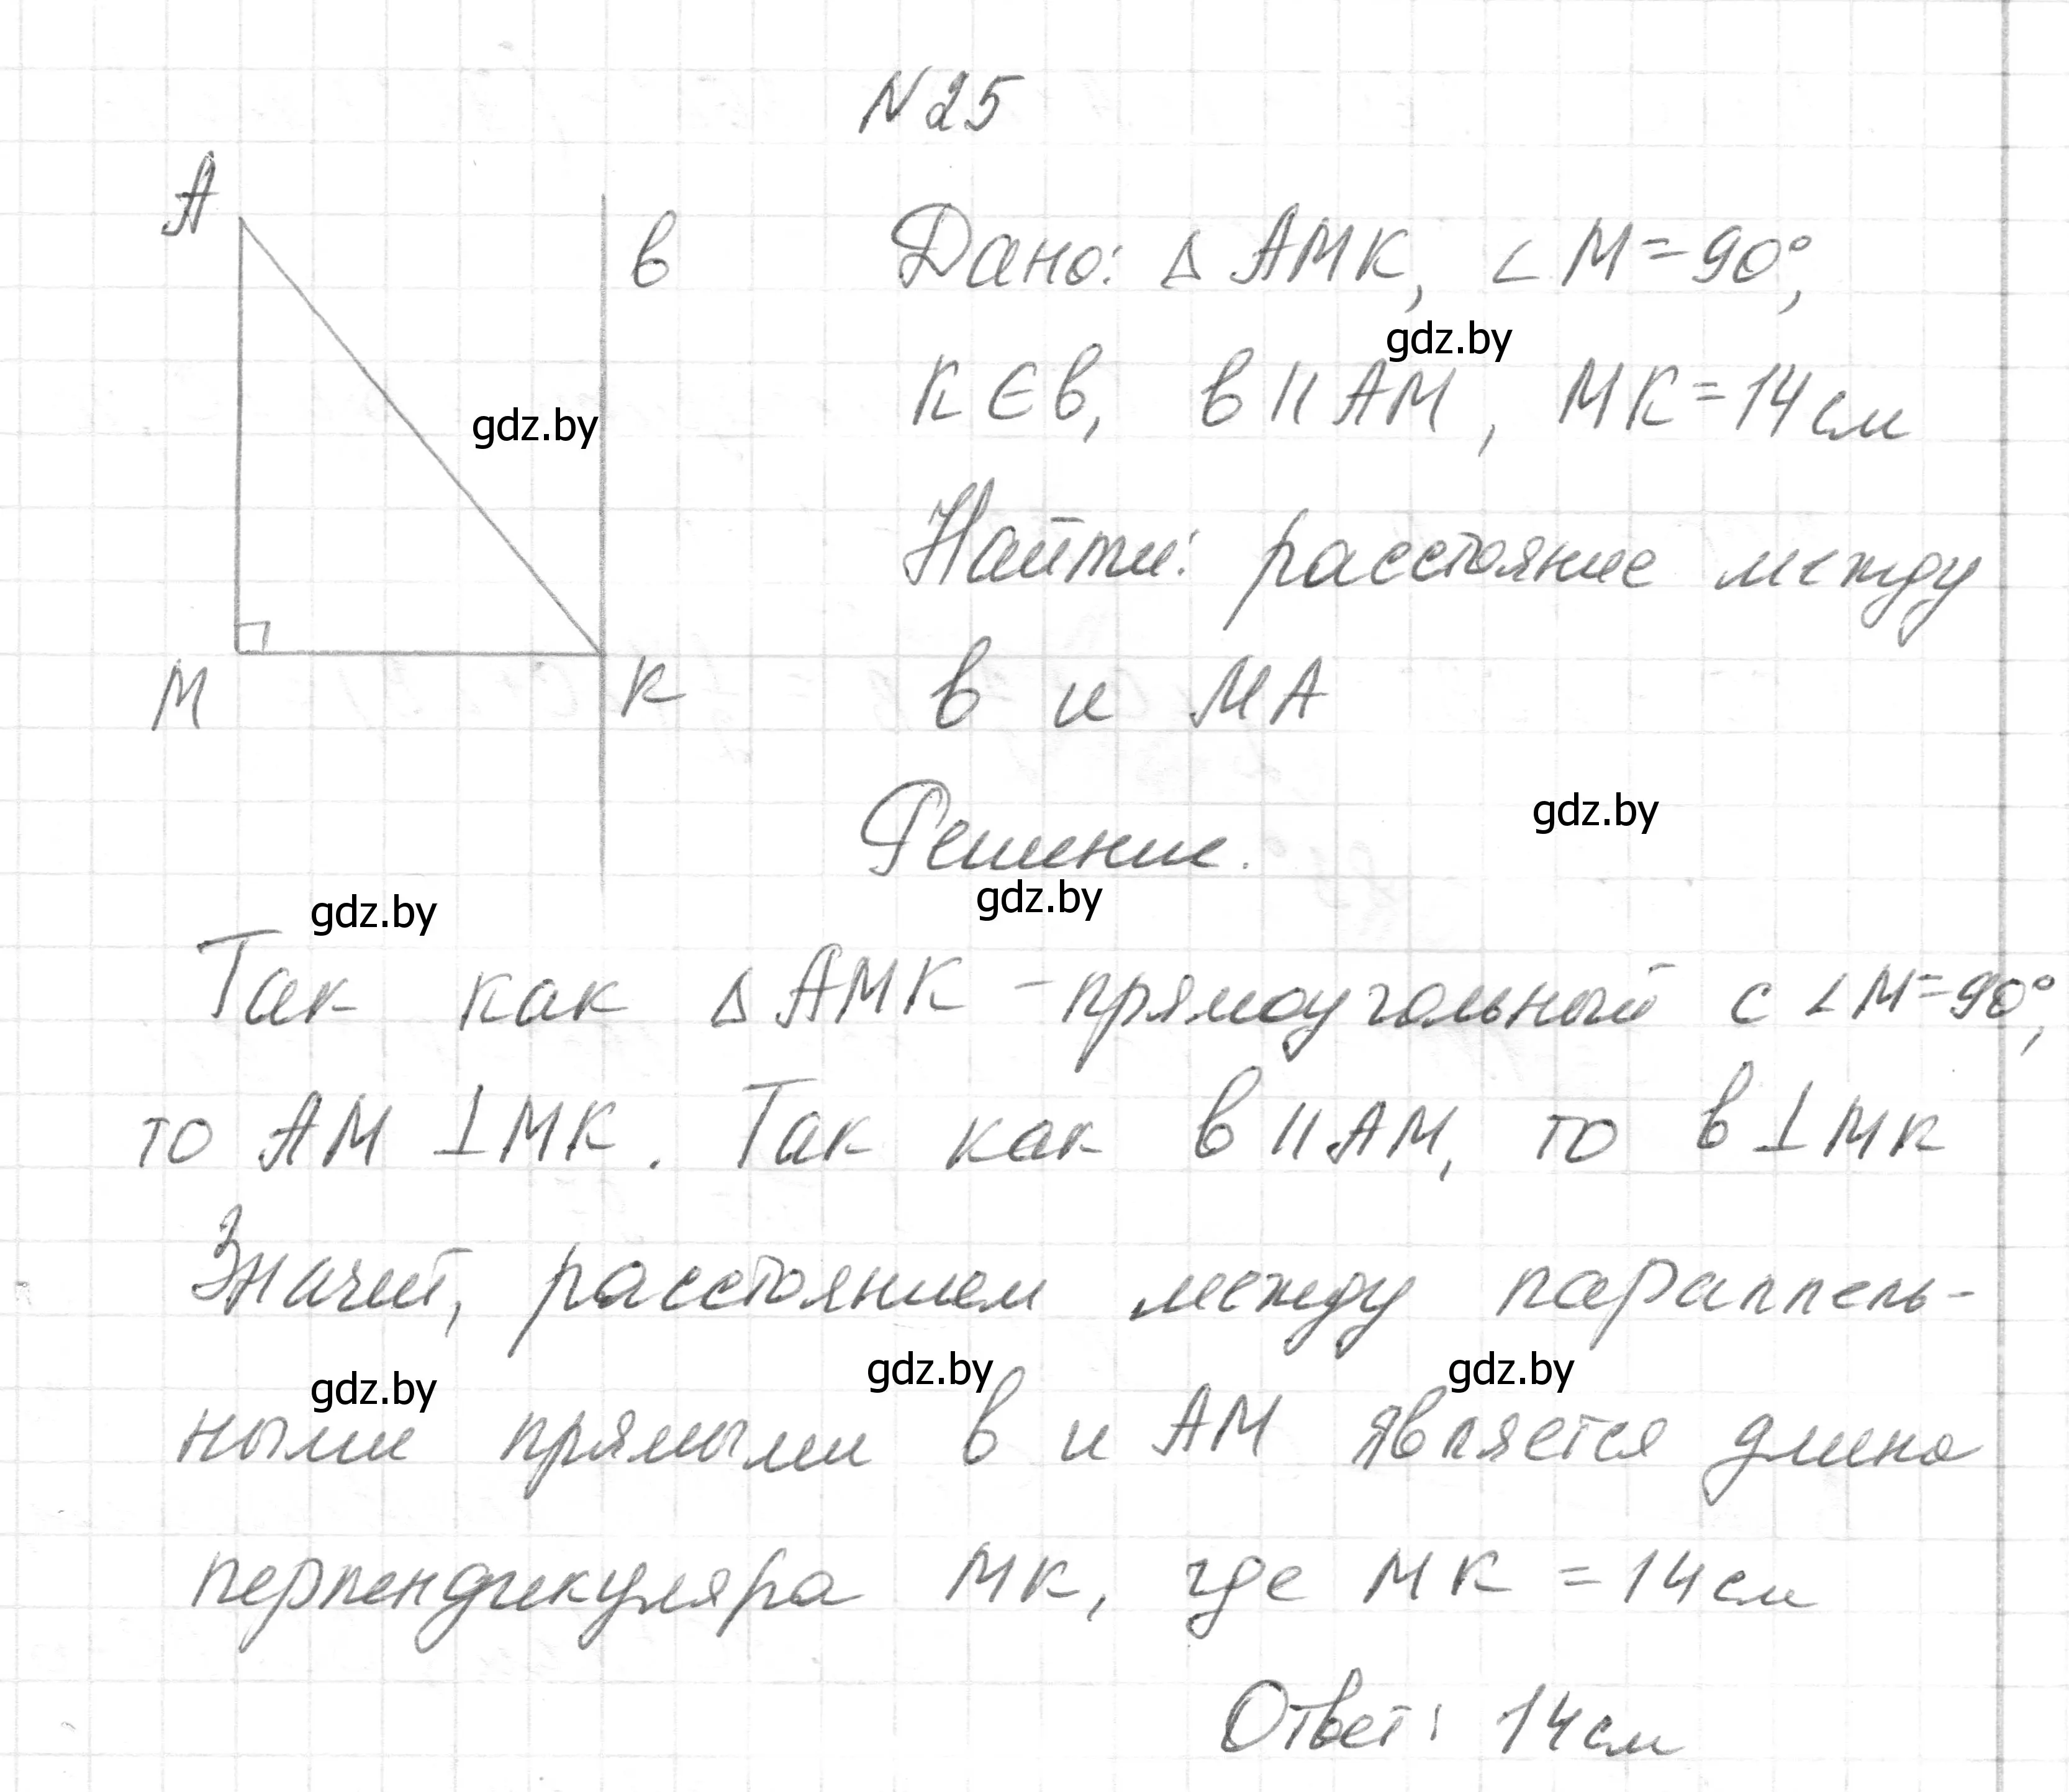 N25
A
в
Дано: ΔAMK, ∠M=90°,
gdz.by
K∈в, в||AM, MK=14см
gdz.by
Найти: расстояние между
M
K
в и MA
Решение.
gdz.by
gdz.by
gdz.by
Так как ΔAMK – прямоугольный с ∠M=90°,
то AM⊥MK. Так как в||AM, то в⊥MK
Значит, расстоянием между параллель-
gdz.by
gdz.by
gdz.by
ными прямыми в и AM является длина
перпендикуляра MK, где MK=14см
Ответ: 14см